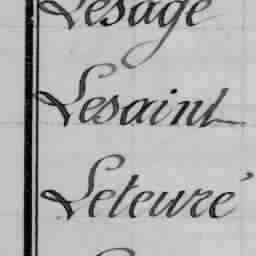 Lesage
Lesaint
Leteuré